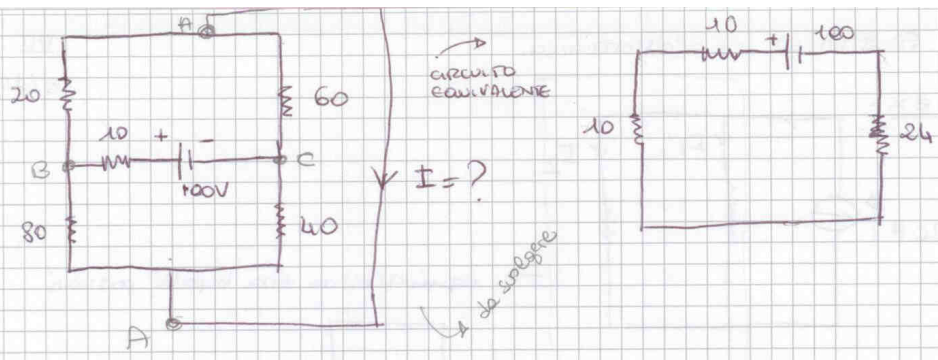 A
20
60
10 + -
B
C
100V
80
40
A
I = ?
CIRCUITO
EQUIVALENTE
da svolgere
10 + 100
10
24